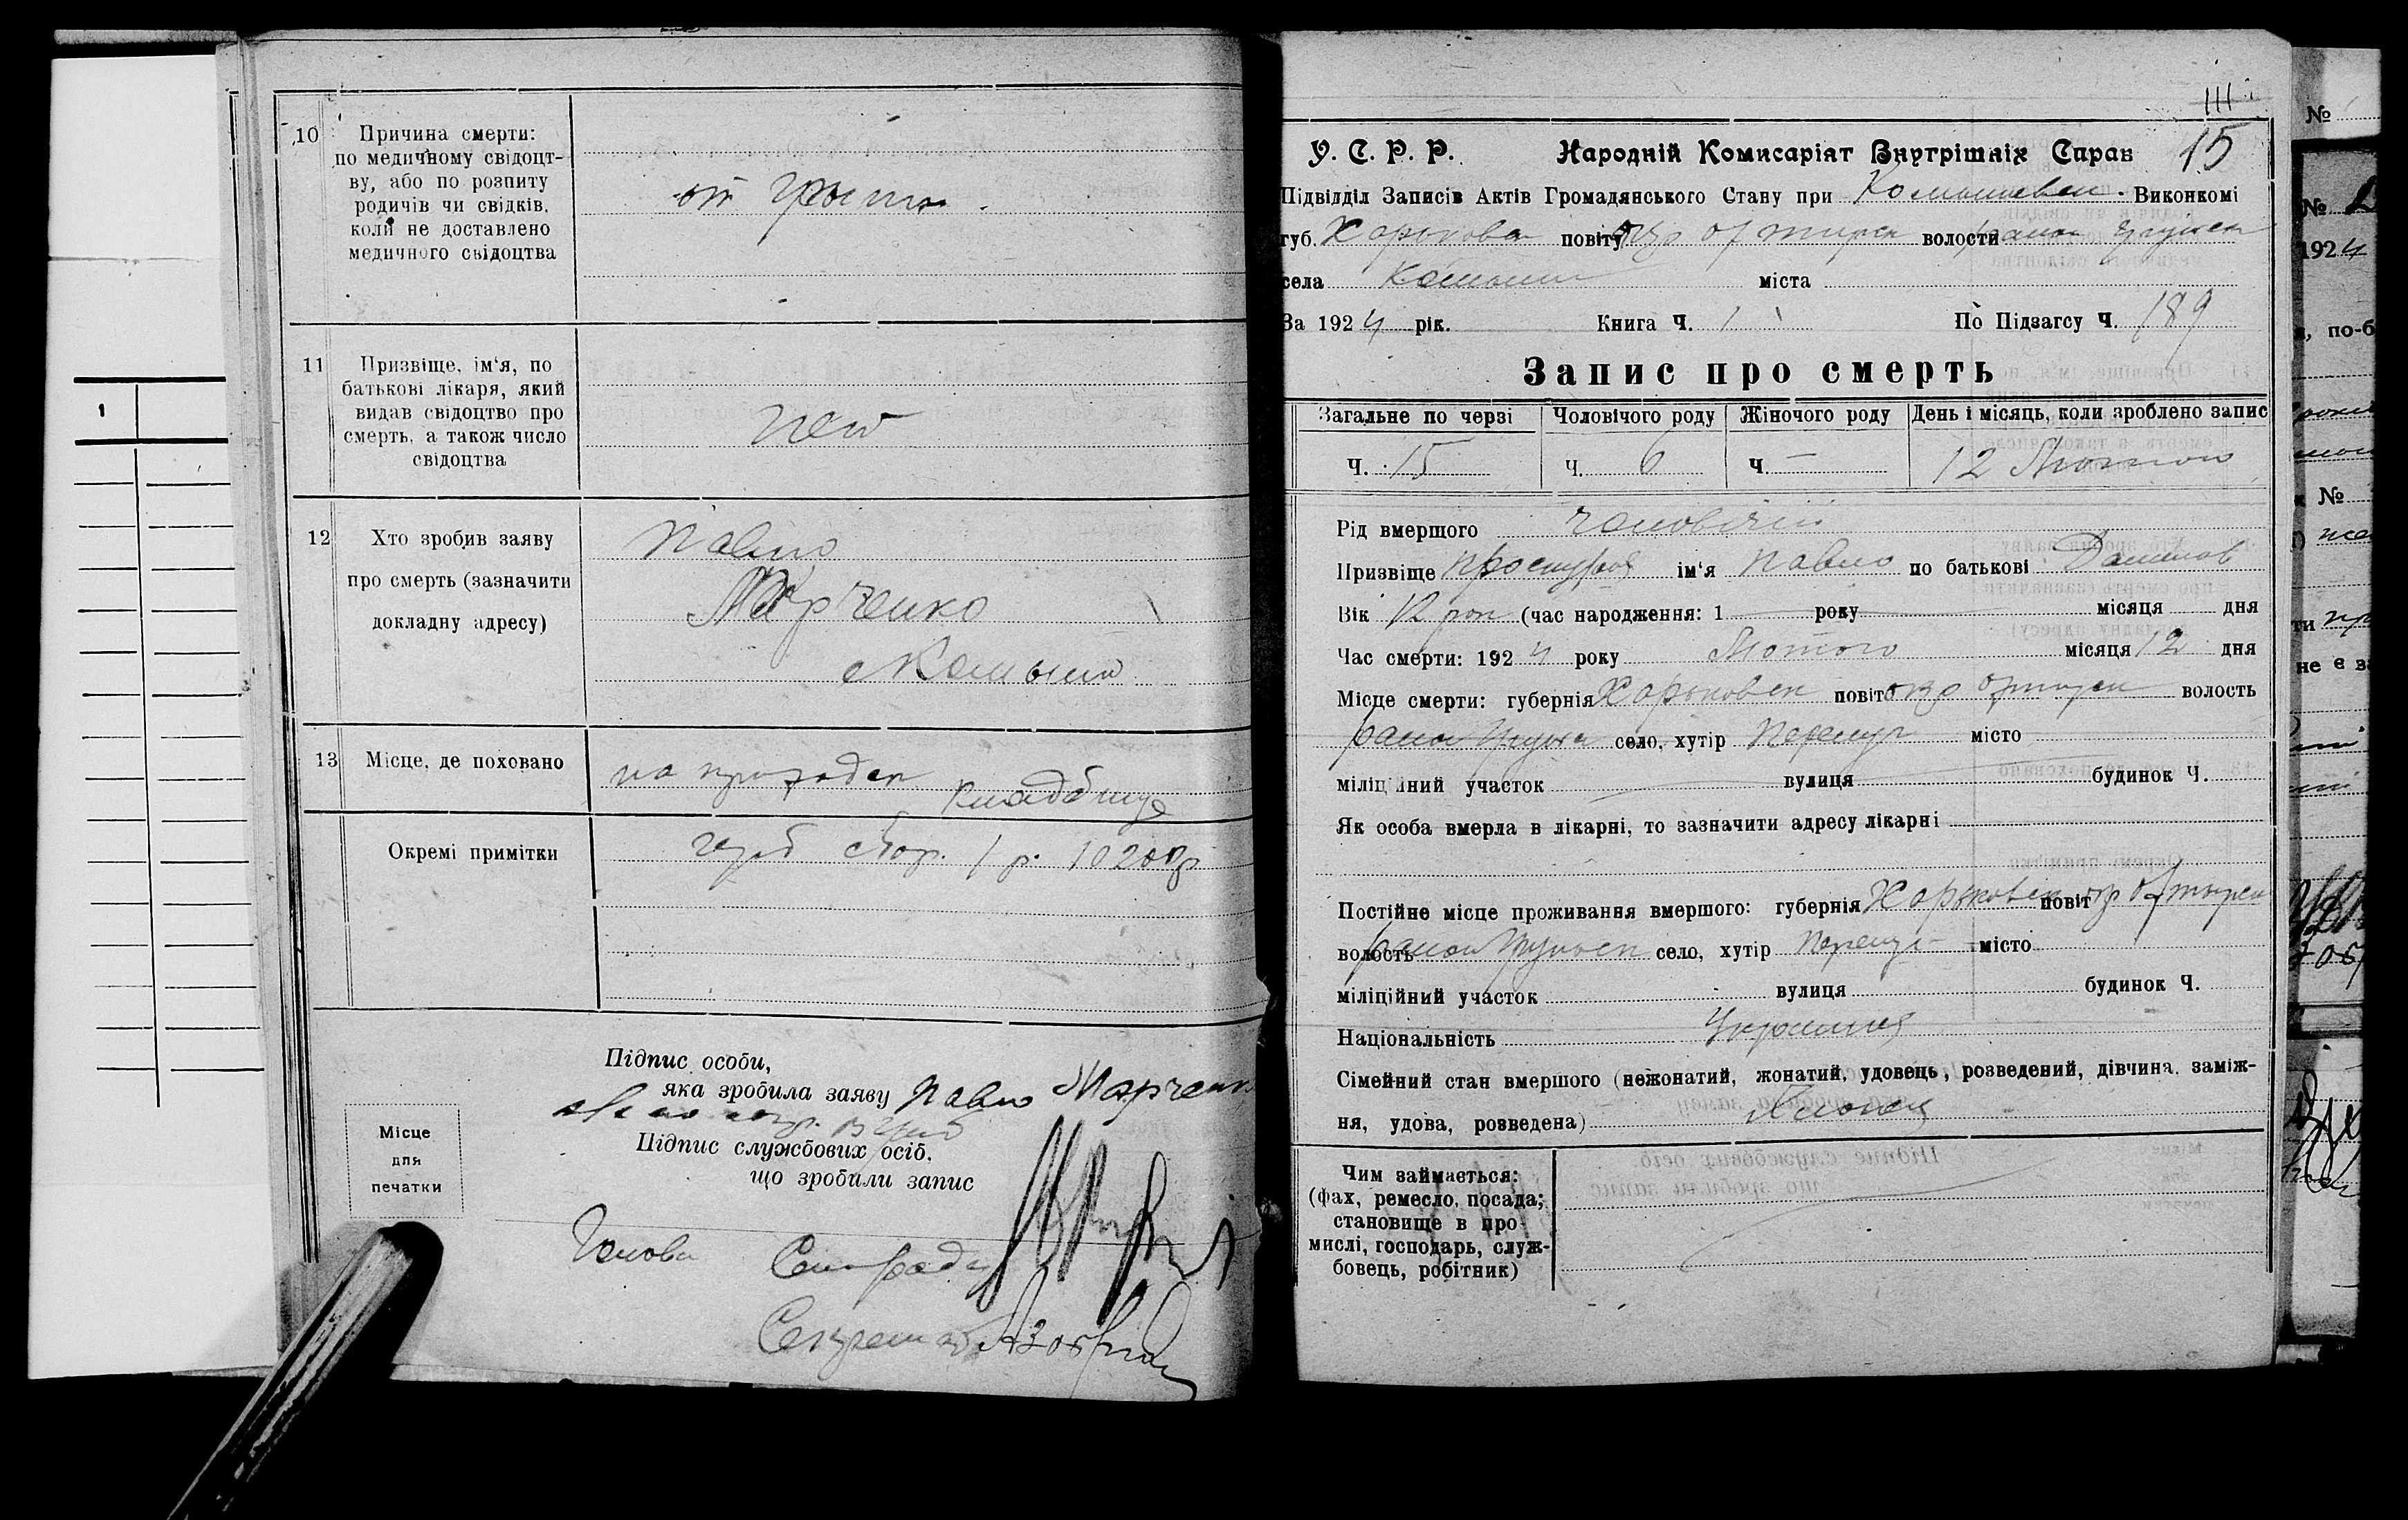 10 Причина смерти:
по медичному свідоцт-
ву, або по розпиту
родичів чи свідків,
коли не доставлено
медичного свідоцтва
от грыпы.
11 Призвіще, ім'я, по
батькові лікаря, який
видав свідоцтво про
смерть, а також число
свідоцтва
нет
12 Хто зробив заяву
про смерть (зазначити
докладну адресу)
Павло
Марченко
с Комыши
13 Місце, де поховано
на
кладбище
Окремі примітки
герб сбор. 1 р.
Підпис особи,
яка зробила заяву Павло Марченко
Підпис службових осіб,
що зробили запис
Місце
для
печатки
Голова Сельради
Секретар
III
У. С. Р. Р. Народній Комисаріят Внутрішніх Справ 15
Підвідділ Записів Актів Громадянського Стану при Комышеван. Виконкомі
губ. Харькова повіту окр Охтирск волости район Грунск
села Комыши міста
За 1924 рік. Книга Ч. 1 По Підзагсу Ч. 189
Запис про смерть
Загальне по черзі Чоловічого роду Жіночого роду День і місяць, коли зроблено запис
Ч. 15 Ч. 6 Ч — 12 Лютого
Рід вмершого чоловічій
Призвіще ім'я Павло по батькові Данилов
Вік 12 рок (час народження: 1 року місяця дня
Час смерти: 1924 року Лютого місяця 12 дня
Місце смерти: губернія Харьковск повіт окр Охтирск волость
район село, хутір місто
міліційний участок вулиця будинок Ч.
Як особа вмерла в лікарні, то зазначити адресу лікарні
Постійне місце проживання вмершого: губернія Харьковск повіт окр Охтырск
волость район Грунск село, хутір місто
міліційний участок вулиця будинок Ч.
Національність Украинец
Сімейний стан вмершого (нежонатий, жонатий, удовець, розведений, дівчина, заміж-
ня, удова, розведена) Хлопец
Чим займається:
(фах, ремесло, посада;
становище в про-
мислі, господарь, служ-
бовець, робітник)
1
№
№
1924
№